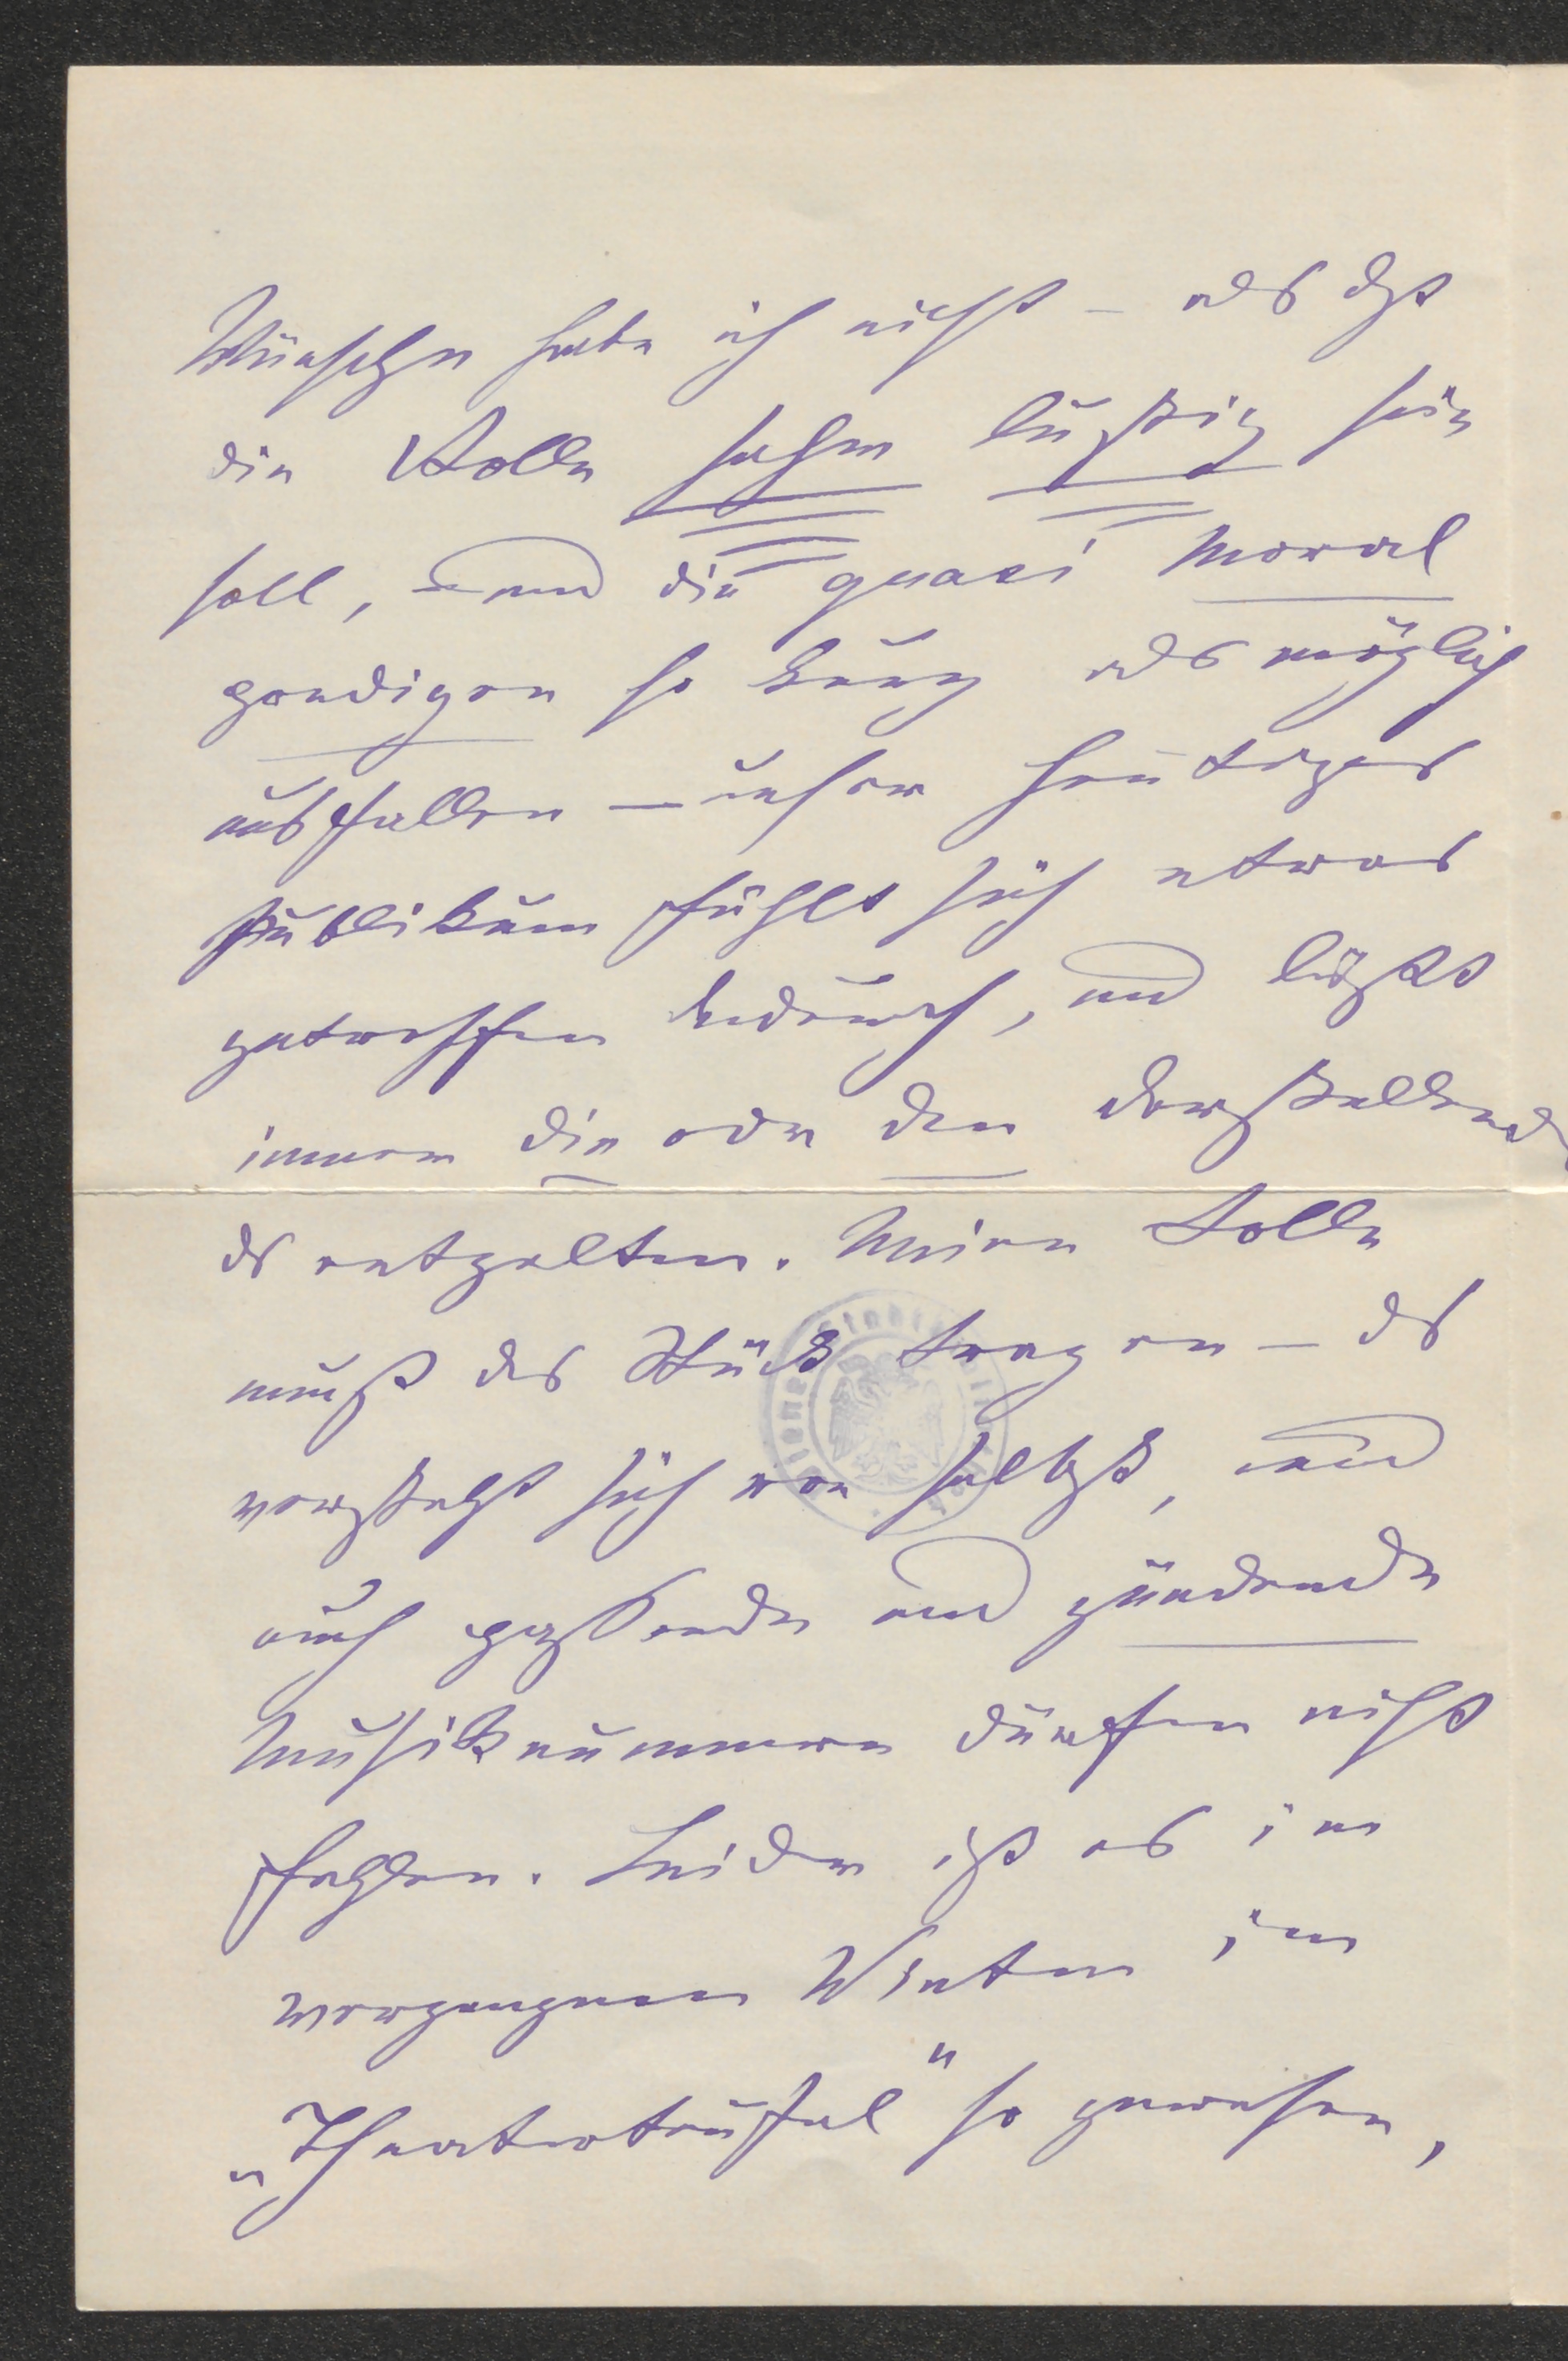 Wünsche habe ich nicht – als dß
die Rolle sehr lustig sein
soll, – und die quasi Moral
predigen so kurz als möglich
ausfallen – unser heutiges
Publikum fühlt sich etwas
getroffen dadurch, und läßts
immer die oder den Darstellend
es entgelten. Meine Rolle
muß das Stück tragen – das
versteht sich von selbst, und
auch passende und zündende
Musiknummern dürfen nicht
fehlen. Leider ist es im
vergangenen Winter im
„Theaterteufel" so gewesen,